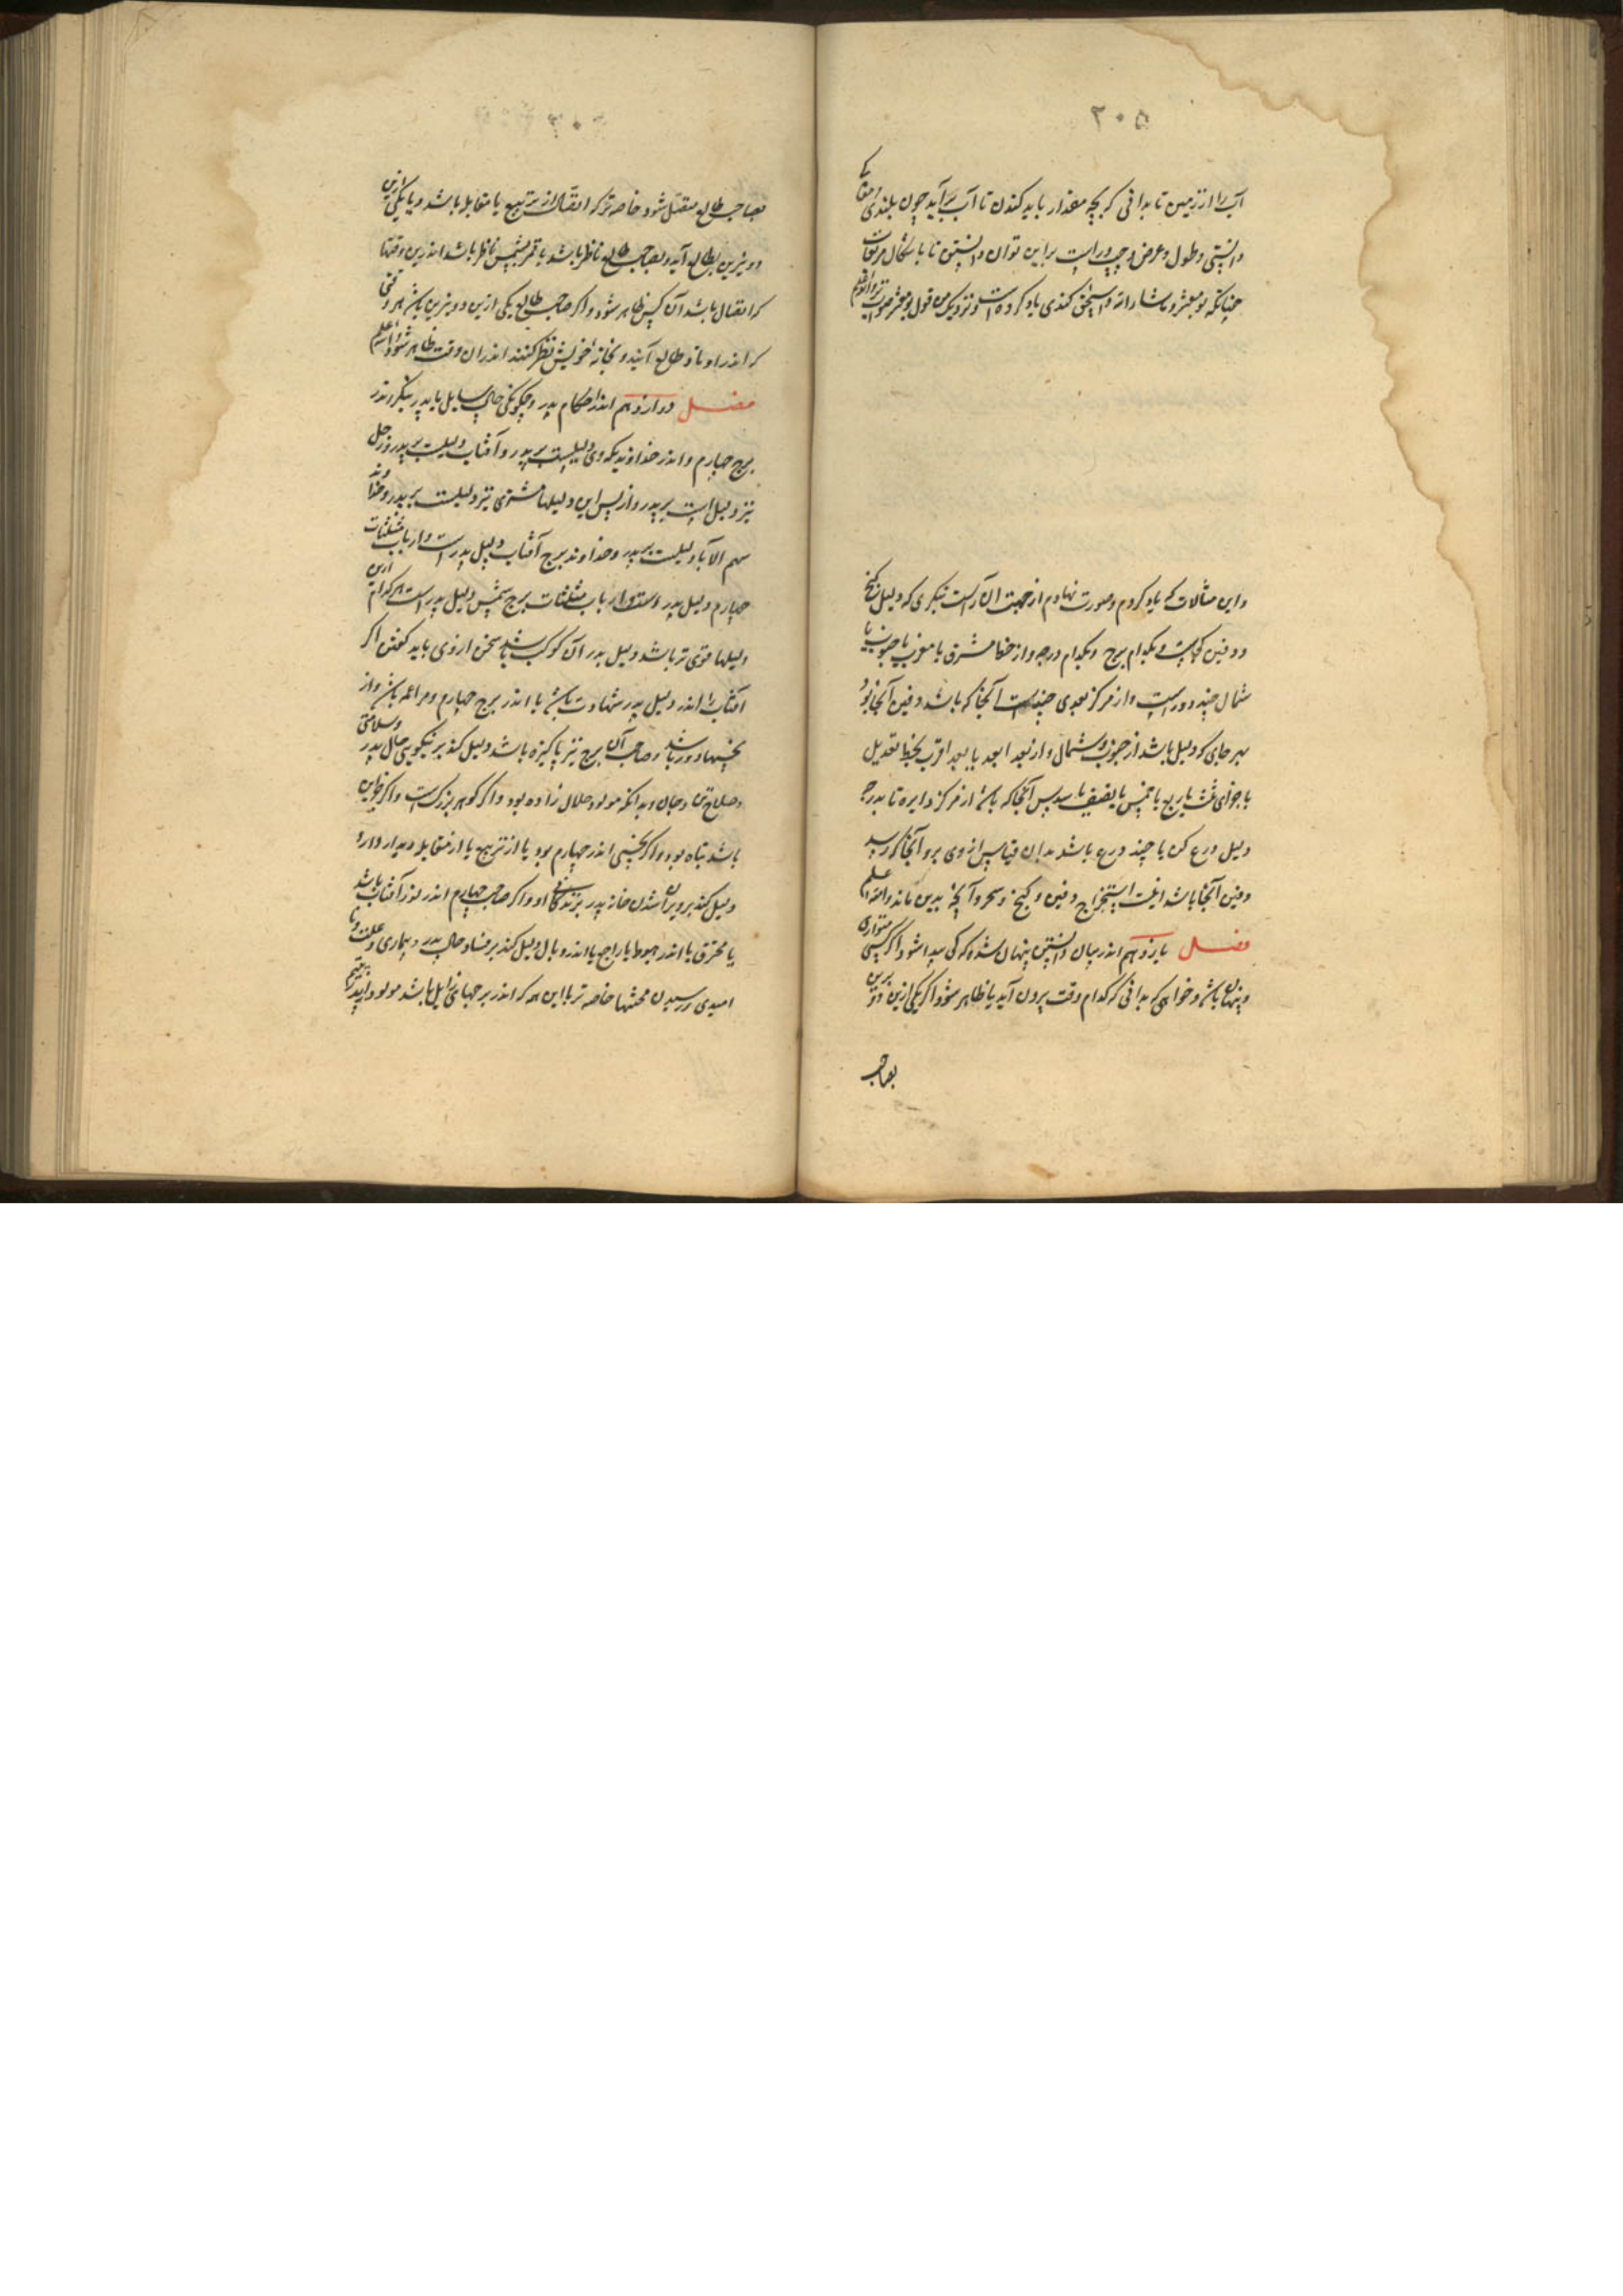 ۲۰۵
آب را از زمین تا بدانی که بچه مقدار باید کندن تا آب برآید چون بلندی
و پستی و طول و عرض و چپ و راست براین توان دانستن تا باشکال
چنانکه بومعشر و ماشاءالله و اسحق کندی یاد کرده است و نزدیک من قول بومعشر صواب
و این مثالات که یاد کردم و صورت نهادم از جهت آن راست بنگری که دلیل گنج
و دفین کجاست و بکدام برج و بکدام درجه و از مشرق یا مغرب یا جنوب یا
شمال چند دورست و از مرکز بعدی چندست آنجا که باشد دفین آنجا بود
بهر جای که دلیل باشد از جنوب و شمال و از بعد ابعد یا بعد اقرب بخط تعدیل
یا ربع یا خمس یا نصف یا سدس آنجا که باشد از مرکز دایره تا بدرجه
دلیل درع کن تا چند درع باشد بدان قیاس از وی برو آنجا که رسد
دفین آنجا باشد اینست استخراج دفین و گنج و سحر و آنچه بدین ماند والله اعلم
فصل یازدهم اندر بیان دانستن پنهان شده که کی پیدا شود اگر کسی متواری
و پنهان باشد و خواهی که بدانی که کدام وقت بیرون آید یا ظاهر شود اگر یکی ازین دو نیرین
بصاحب
بصاحب طالع متصل شود خاصه ترکه اتصال از تربیع یا مقابله باشد و یا یکی ازین
دو نیرین بطالع آید و بصاحب طالع ناظر باشد یا قمر بشمس ناظر باشد اندرین وقتها
که اتصال باشد آن کس ظاهر شود و اگر صاحب طالع یکی ازین دو نیرین باشد هر وقتی
که اندر اوتاد طالع آیند و بخانه خویش نظر کنند اندران وقت ظاهر شود والله اعلم
فصل دوازدهم اندر احکام پدر و چگونگی حال سایل با پدر بنگر اندر
برج چهارم و اندر خداوند که وی دلیلست بر پدر و آفتاب دلیلست بر پدر و زحل
نیز دلیل است بر پدر و از پس این دلیلها مشتری نیز دلیلست بر پدر و خداوند
سهم الآبا دلیلست بر پدر و خداوند برج آفتاب دلیل پدر است و ارباب مثلثات
چهارم دلیل پدر است و ارباب مثلثات برج شمس دلیل پدر است هر کدام ازین
دلیلها قوی تر باشد دلیل پدر آن کوکب باشد سخن از وی باید گفتن اگر
آفتاب را اندر دلیل پدر شهادت باشد یا اندر برج چهارم باشد و از
نحسها دور باشد و صاحب آن برج نیز پاکیزه باشد دلیل کند بر نیکویی حال پدر و سلامتی
و صلاح تن و جان و بدانکه مولود حلال زاده بود و اگر گوهر بزرگست و اگر جز این
باشد تباه بود و اگر نحسی اندر چهارم بود یا از تربیع یا از مقابله دیدار دارد
دلیل کند بر ویران شدن خانه پدر بزندگانی او و اگر صاحب چهارم اندر نور آفتاب باشد
یا محترق یا اندر هبوط یا راجع یا اندر وبال دلیل کند بر فساد حال پدر و بیماری و علت
امیدی و رسیدن محنتها خاصه تر با این همه که اندر برجهای زایل باشد مولود را